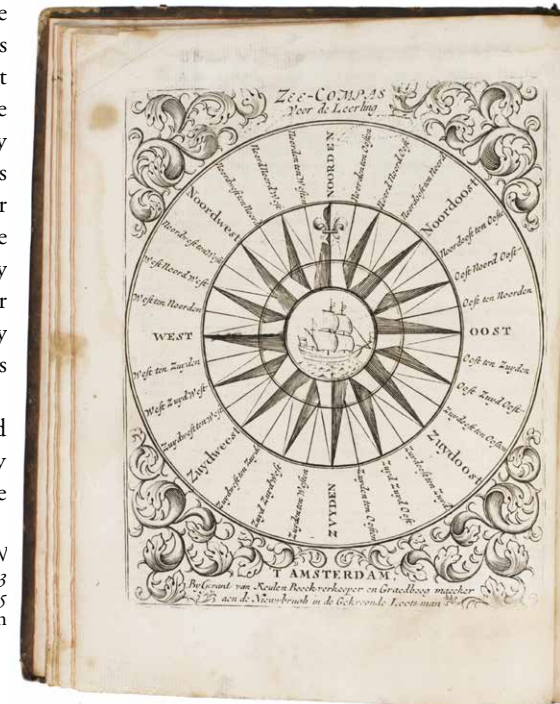 e
s
t
e
y
s
r
e
y
r
y
s
d
y
e
N
3
5
n
ZEE-COMPAS
Voor de Leerling
NOORDEN
Noorden ten Oosten
Noord Noord Oost
Noordoost ten Noorden
Noordoost
Noordoost ten Oosten
Oost-Noord Oost
Oost ten Noorden
OOST
Oost ten Zuyden
Oost Zuyd Oost
Zuydoost ten Oosten
Zuydoost
Zuydoost ten Zuyden
Zuyd Zuyd Oost
Zuyden ten Oosten
ZUYDEN
Zuyden ten Westen
Zuyd Zuyd West
Zuydwest ten Zuyden
Zuydwest
Zuydwest ten Westen
West Zuyd West
West ten Zuyden
WEST
West ten Noorden
West Noord West
Noordwest ten West
Noordwest
Noordwest ten Noorden
Noord Noord West
Noorden ten Westen
T AMSTERDAM,
By Gerard van Keulen Boeckverkooper en Graedboog maecker
aen de Nieuwbrugh in de Gekroonde Lootsman